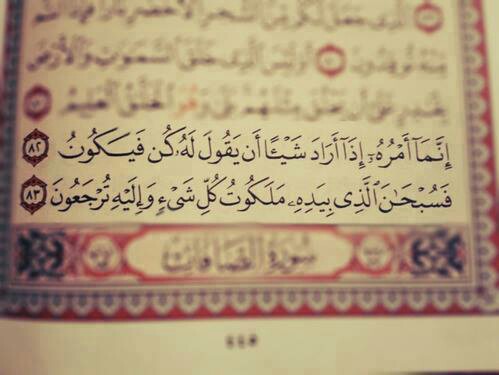 ٱلَّذِى جَعَلَ لَكُم مِّنَ ٱلشَّجَرِ ٱلْأَخْضَرِ نَارًا فَإِذَآ أَنتُم
مِّنْهُ تُوقِدُونَ ٨٠ أَوَلَيْسَ ٱلَّذِى خَلَقَ ٱلسَّمَٰوَٰتِ وَٱلْأَرْضَ
بِقَٰدِرٍ عَلَىٰٓ أَن يَخْلُقَ مِثْلَهُم بَلَىٰ وَهُوَ ٱلْخَلَّٰقُ ٱلْعَلِيمُ ٨١
إِنَّمَآ أَمْرُهُۥٓ إِذَآ أَرَادَ شَيْـًٔا أَن يَقُولَ لَهُۥ كُن فَيَكُونُ ٨٢
فَسُبْحَٰنَ ٱلَّذِى بِيَدِهِۦ مَلَكُوتُ كُلِّ شَىْءٍ وَإِلَيْهِ تُرْجَعُونَ ٨٣
سُورَةُ الصَّافَّاتِ
٤٤٥